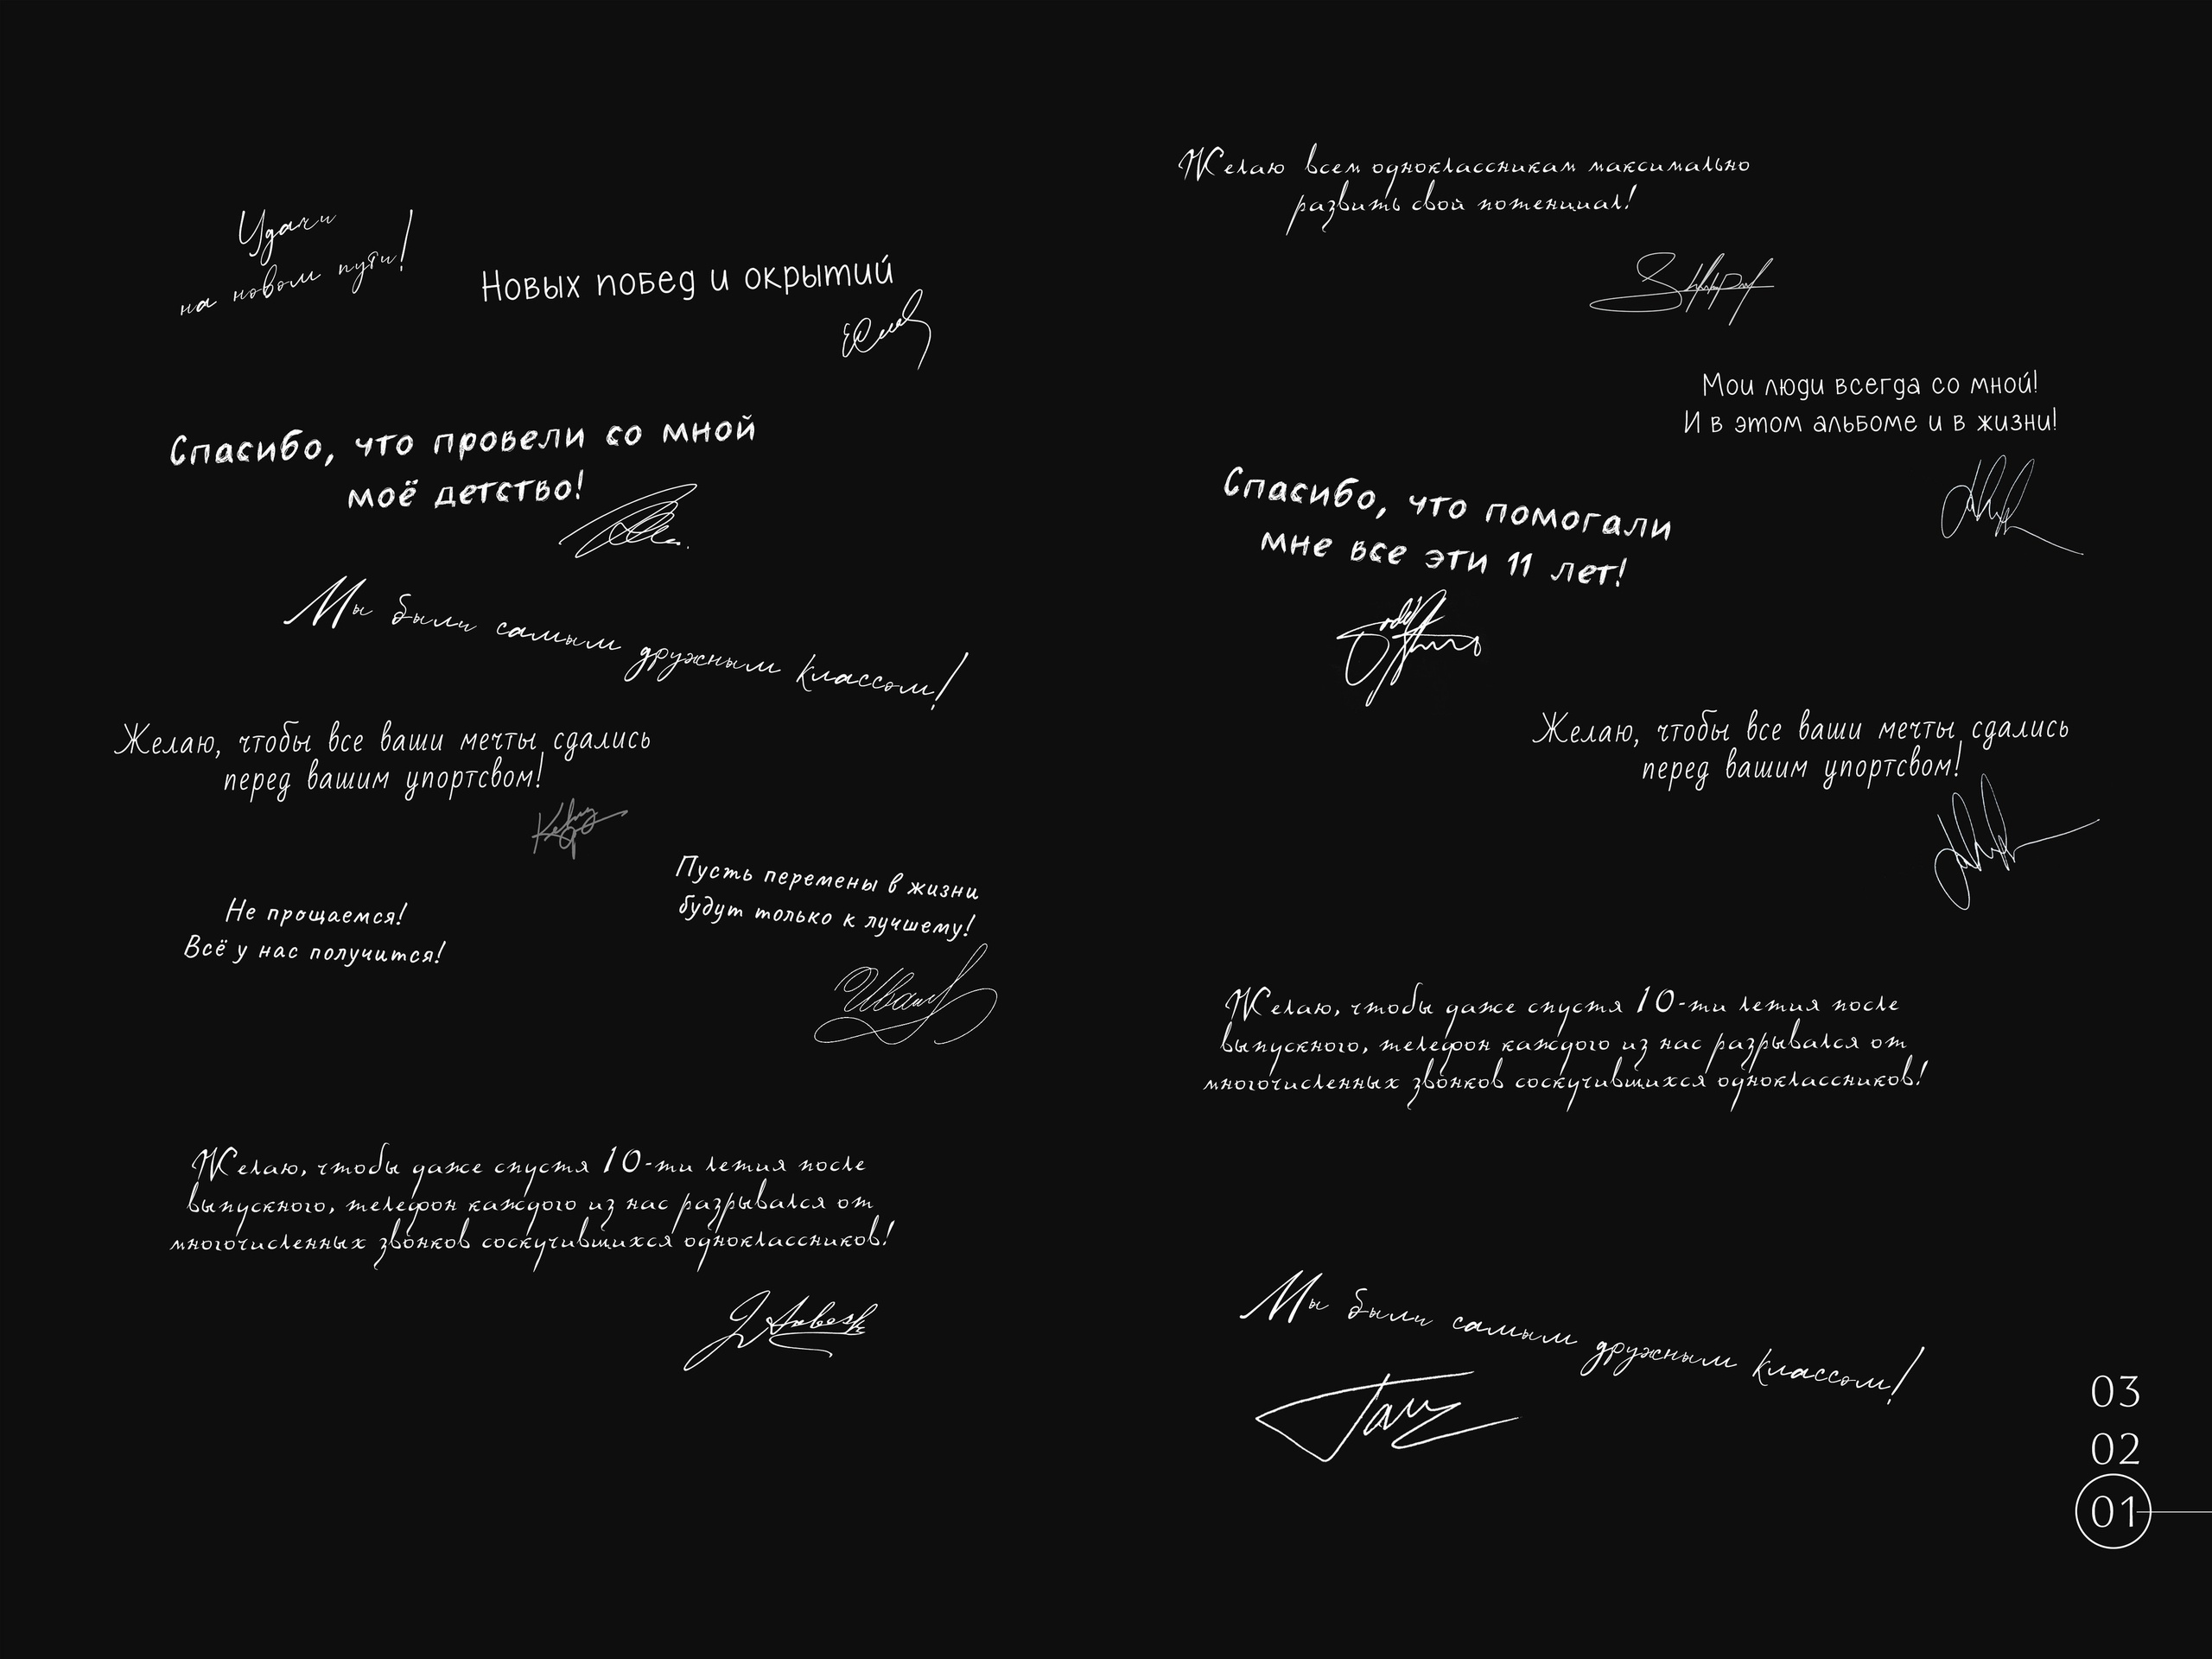 Удачи
на новом пути!
Новых побед и окрытий
Спасибо, что провели со мной
моё детство!
Мы были самым дружным классом!
Желаю, чтобы все ваши мечты сдались
перед вашим упортсвом!
Не прощаемся!
Всё у нас получится!
Пусть перемены в жизни
будут только к лучшему!
Желаю, чтобы даже спустя 10-ти летия после
выпускного, телефон каждого из нас разрывался от
многочисленных звонков соскучившихся одноклассников!
Желаю всем одноклассникам максимально
развить свой потенциал!
Мои люди всегда со мной!
И в этом альбоме и в жизни!
Спасибо, что помогали
мне все эти 11 лет!
Желаю, чтобы все ваши мечты сдались
перед вашим упортсвом!
Желаю, чтобы даже спустя 10-ти летия после
выпускного, телефон каждого из нас разрывался от
многочисленных звонков соскучившихся одноклассников!
Мы были самым дружным классом!
03
02
01